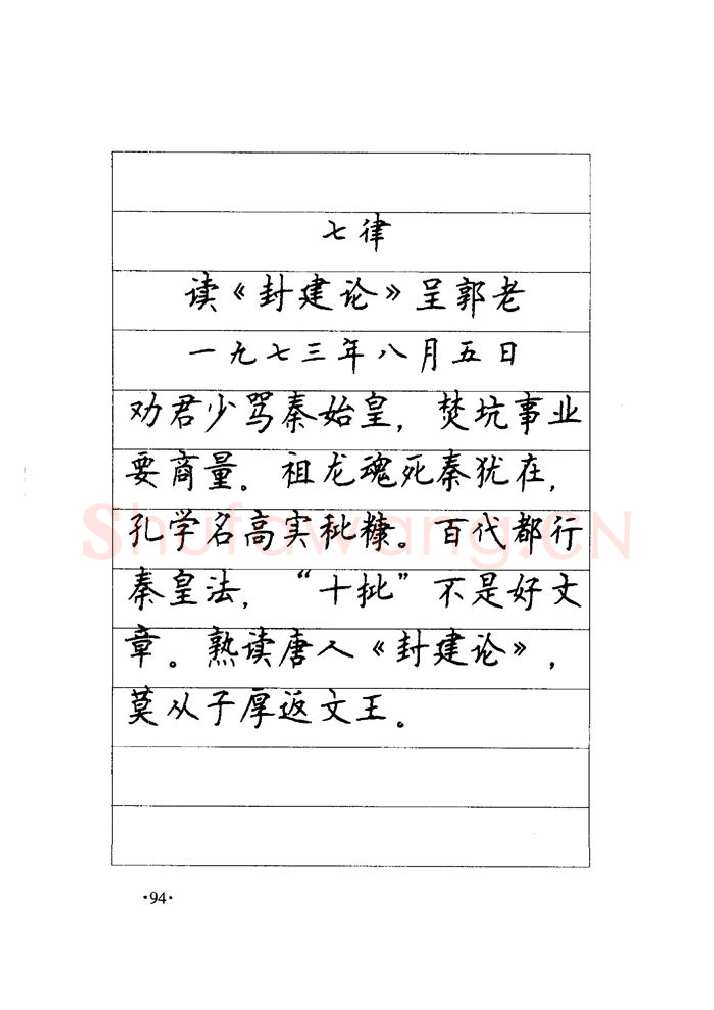 七律
读《封建论》呈郭老
一九七三年八月五日
劝君少骂秦始皇，焚坑事业
要商量。祖龙魂死秦犹在，
孔学名高实秕糠。百代都行
秦皇法，“十批”不是好文
章。熟读唐人《封建论》，
莫从子厚返文王。
Shufawang.CN
·94·